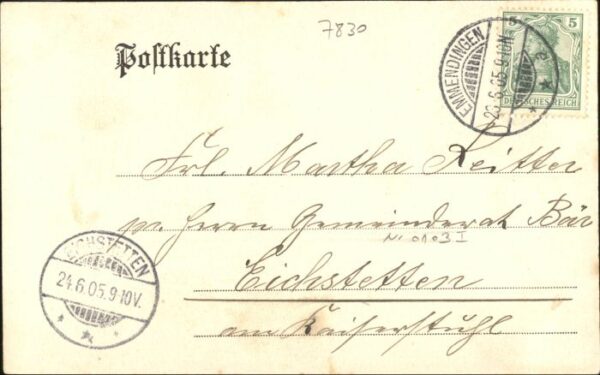 7830
Postkarte
5 5
DEUTSCHES REICH
EMMENDINGEN
23.6.05.9-10N.
Frl. Martha Reitter
p. Herrn Gemeinderat Bär
Nr. 0103 I
Eichstetten
am Kaiserstuhl
EICHSTETTEN
24.6.05.9-10V.